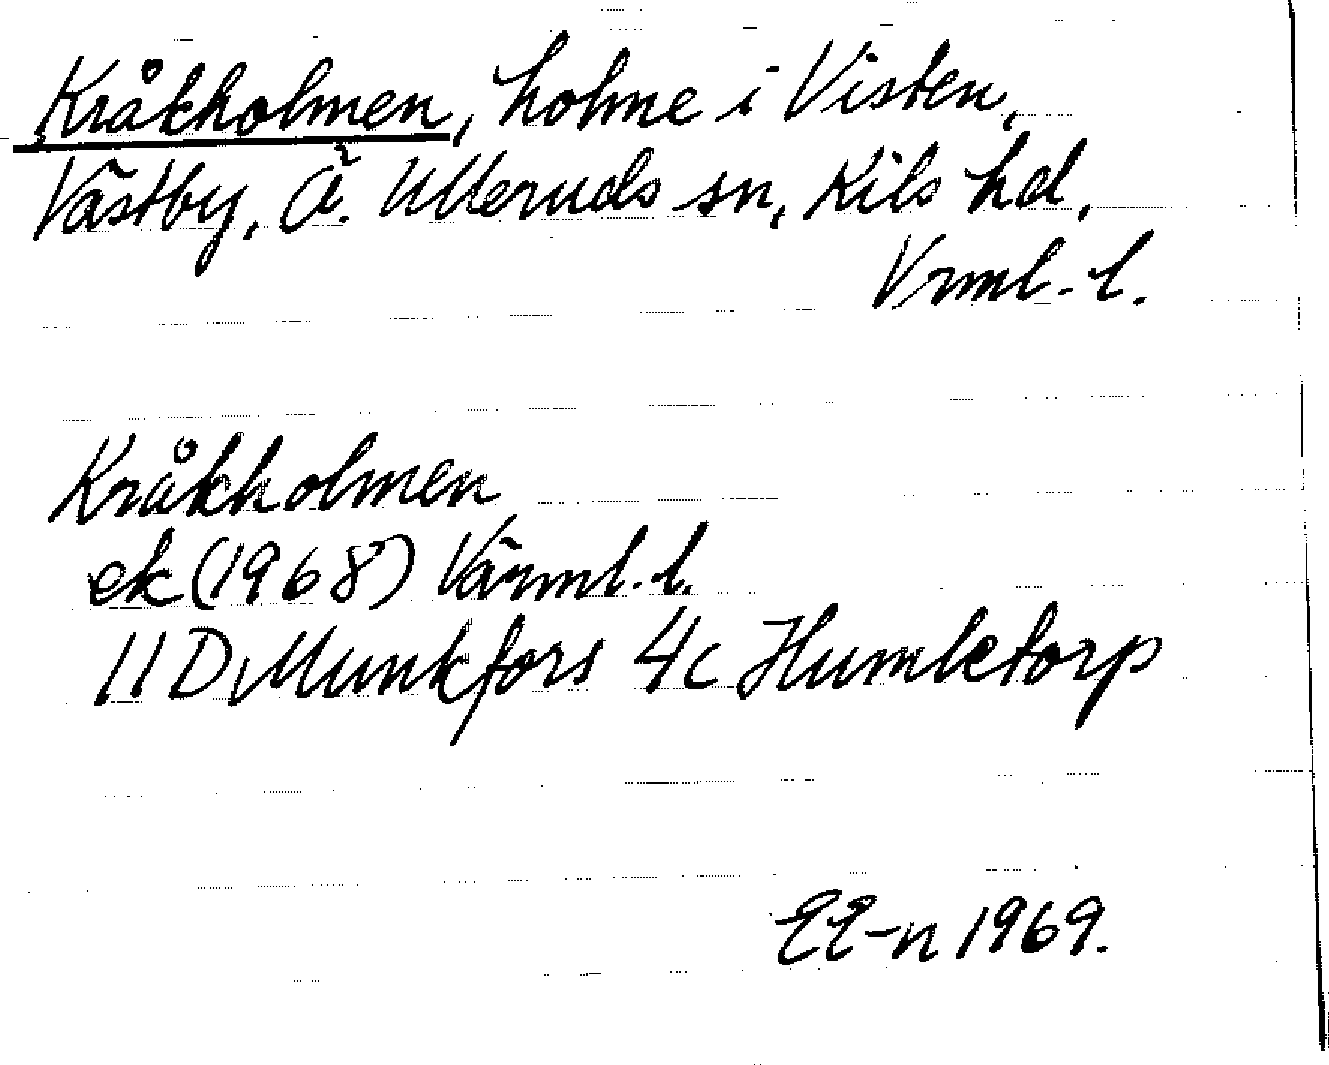 Kråkholmen, holme i Visten,
Västby, Ö. Ulleruds sn, Kils hd,
Vrml. l.
Kråkholmen
ek (1968) Värml. l.
11 D Munkfors 4c Humletorp
EE-n 1969.